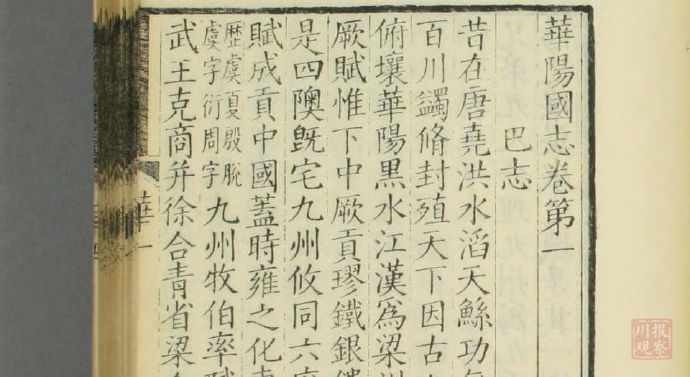 華陽國志卷第一
巴志
昔在唐堯洪水滔天鯀功
百川蠲脩封殖天下因古
俯壤華陽黑水江漢爲梁
厥賦惟下中厥貢璆鐵銀
是四隩旣宅九州攸同六
賦成貢中國蓋時雍之化
歴虞夏殷脫
虞字衍周字
九州牧伯率
武王克商并徐合青省梁
華一
川报
观察